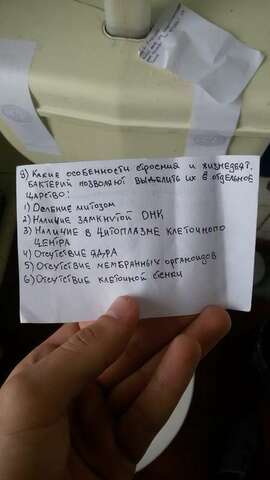 9) Какие особенности строения и жизнедеят.
бактерий позволяют выделить их в отдельное
царство?
1) Деление митозом
2) Наличие замкнутой ДНК
3) Наличие в цитоплазме клеточного
центра
4) Отсутствие ядра
5) Отсутствие мембранных органоидов
6) Отсутствие клеточной стенки